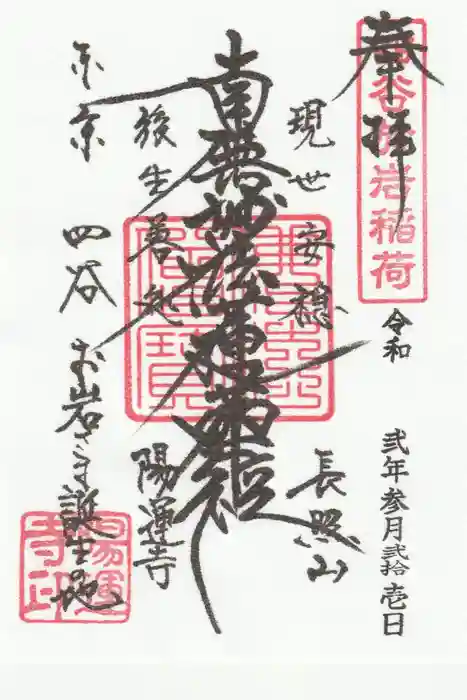 奉拝
四谷於岩稲荷
令和
弐年参月弐拾壱日
現世安穏
長照山
南無妙法蓮華経
後生善処
陽運寺
東京
四谷
お岩さま誕生地
陽運寺印